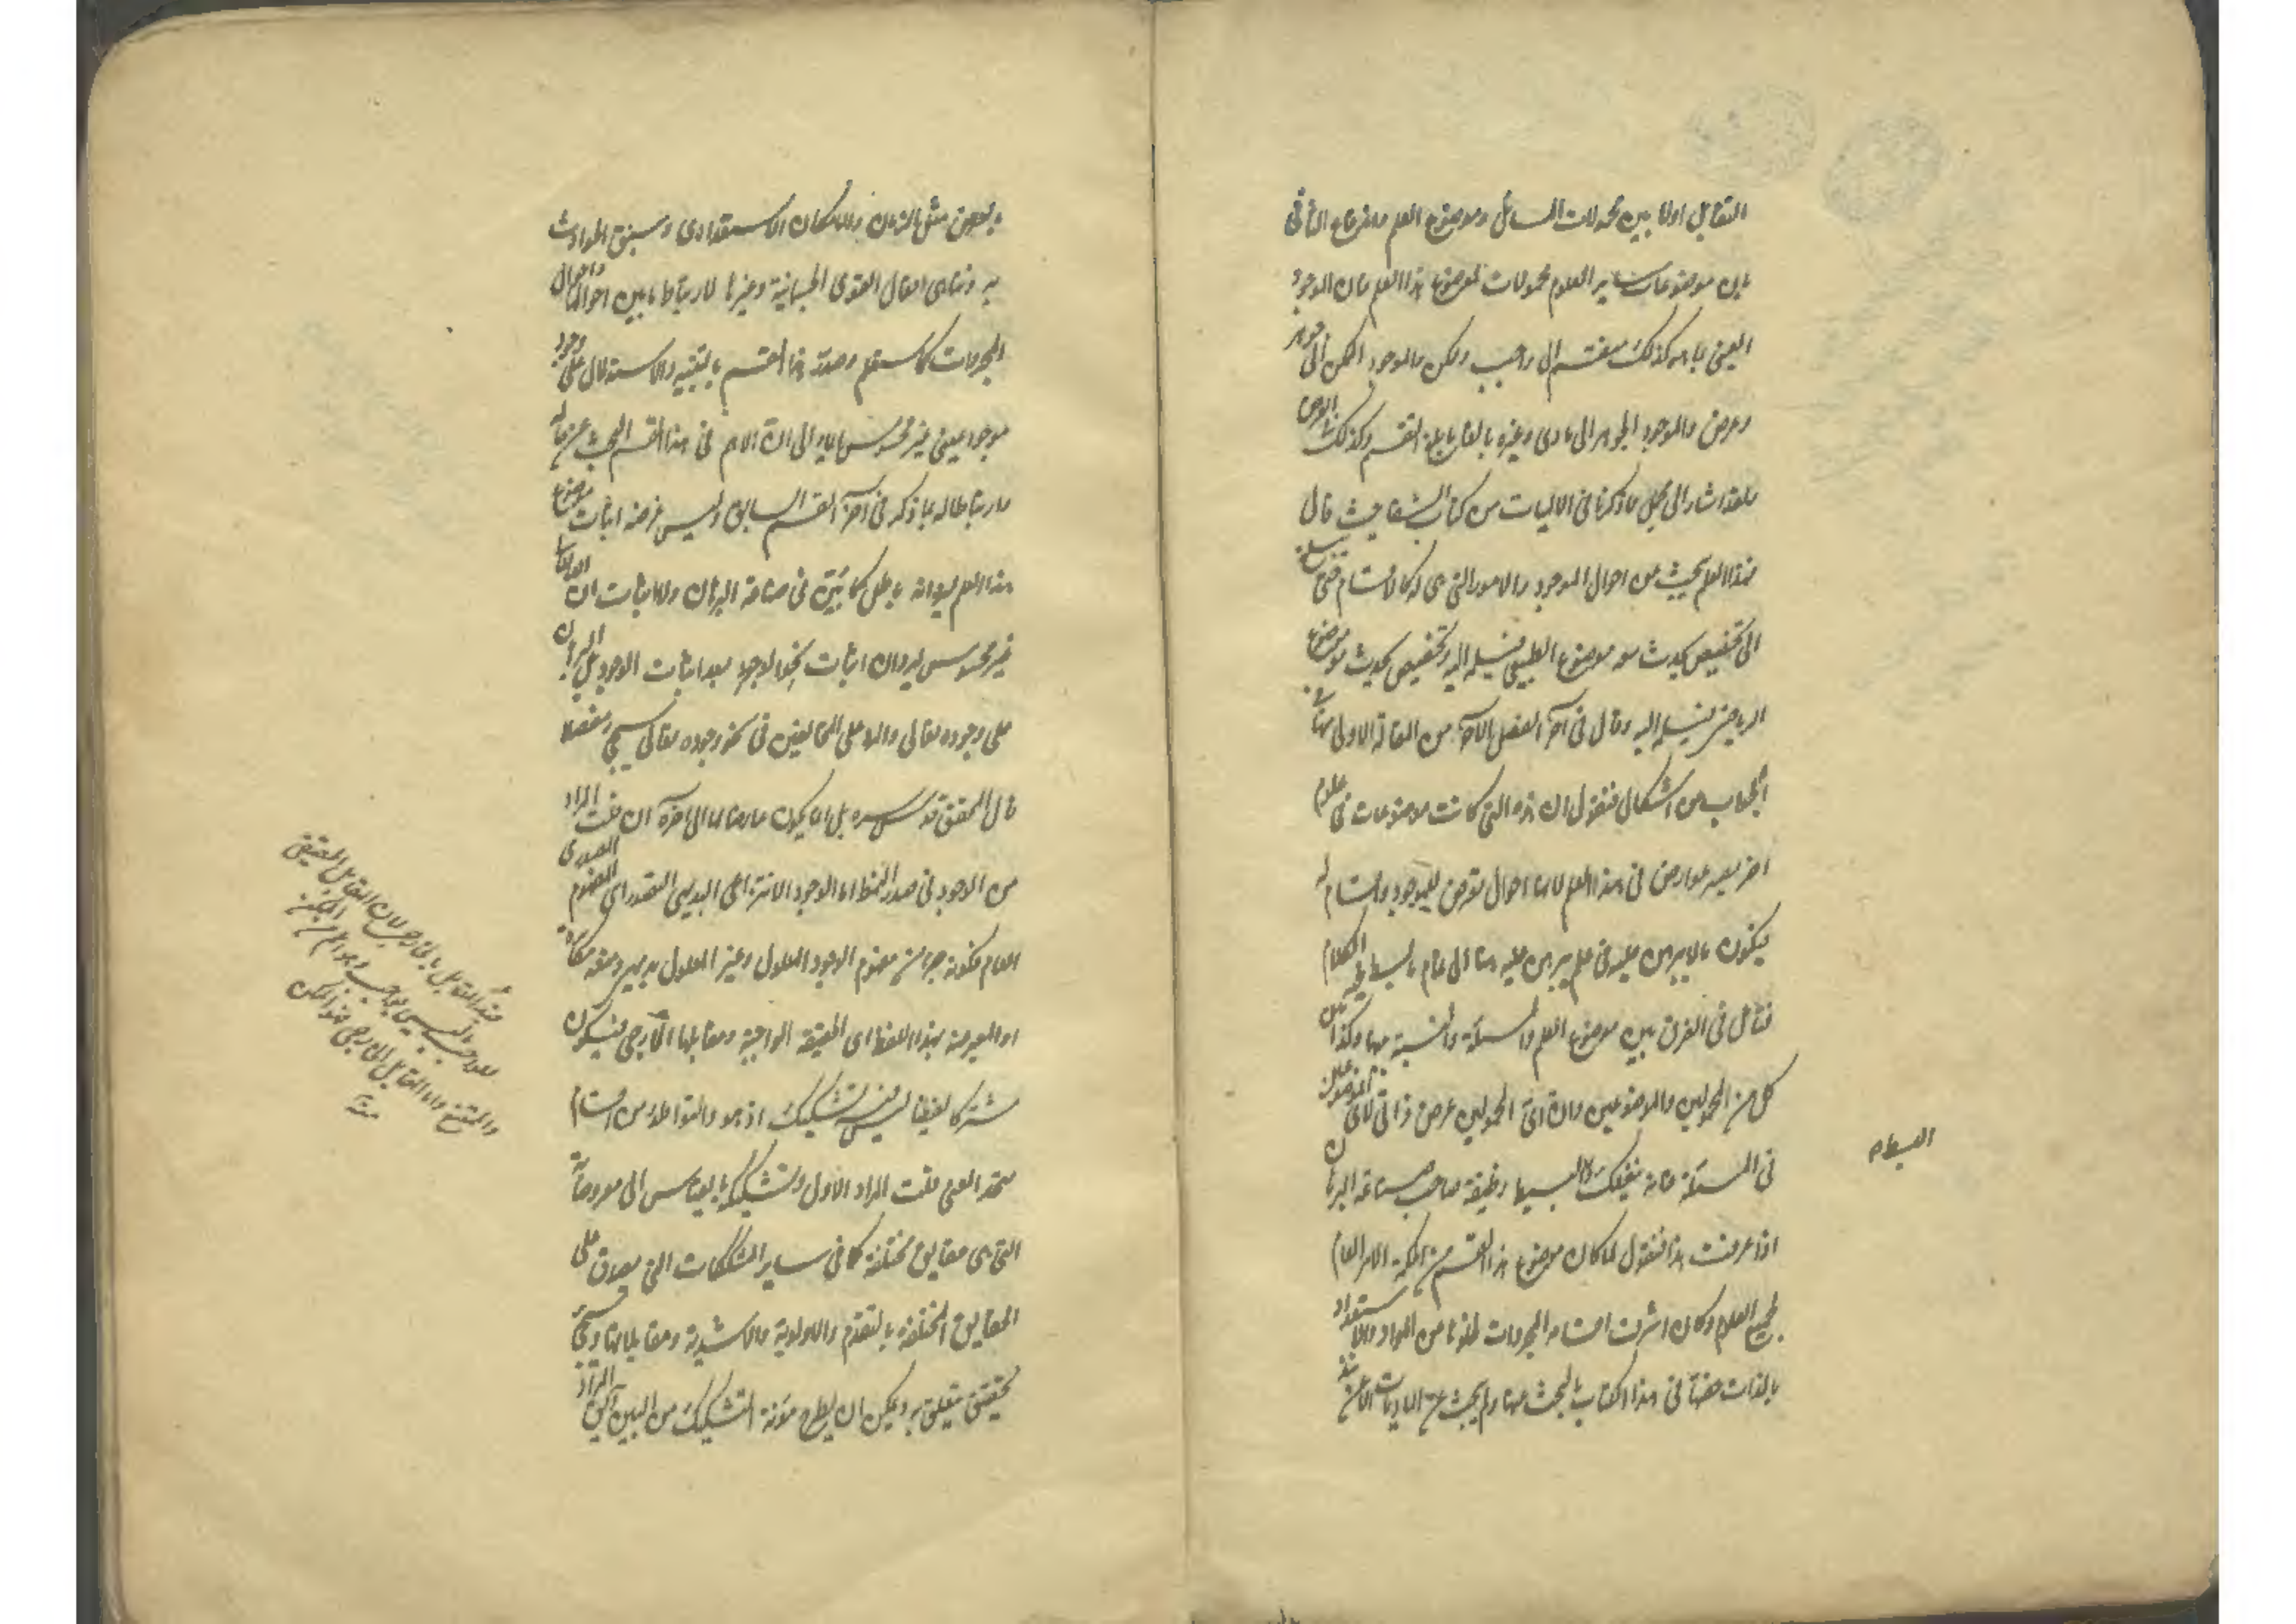 التقابل اولا بين محمولات المسائل وموضوع العلم والنزاع الثانى
بان موضوعات ساير العلوم محمولات لموضوع هذا العلم فان الموجود
العينى بما هو كذلك منقسم الى واجب وممكن والموجود الممكن الى جوهر
وعرض والموجود الجوهر الى مادى وغيره بالقابل للقسم وكذلك العرض
ولقد اشار الى مجمل ما ذكرنا فى الالهيات من كتاب الشفا حيث قال
فهذا العلم يبحث عن احوال الموجود والامور التى هى له كالاقسام حتى يبلغ
الى تخصيص يحدث معه موضوع الطبيعى فيسلمه اليه وتخصيص يحدث موضوع
الرياضى فيسلمه اليه وقال فى آخر الفصل الآخر من المقالة الاولى منها
الجواب عن اشكال فنقول ان هذه التى كانت موضوعات فى علوم
اخر يصير عوارض فى هذا العلم لانها احوال تعرض للموجود واقسام له
فيكون ما لا يبرهن عليه فى علم يبرهن عليه هنا الى تمام ما بسط فيه الكلام
فتأمل فى الفرق بين موضوع العلم والمسئلة والنسبة بينها وكذا بين
كل من المحمولين والموضوعين وان اى المحمولين عرض ذاتى لاى الموضوعين
فى المسئلة فانه ينفعك لا سيما وظيفة صاحب صناعة البرهان
اذا عرفت هذا فنقول لما كان موضوع هذا القسم من الحكمة الامر العام
لجميع العلوم وكان اشرف اقسامه المجردات لخلوها من المواد والاستعداد
بالذات خصها فى هذا الكتاب بالبحث عنها ولم يبحث عن الماديات الا عن
وبعض مثل الزمان والامكان الاستعدادى وسبق الحوادث
به وتناهى افعال القوى الجسمانية وغيرها لارتباط ما بين احوالها واحوال
المجردات كما ستعلم وصدر هذا القسم بالتنبيه والاستدلال على وجود
موجود عينى غير محسوس ايماء الى ان الاهم فى هذا القسم البحث عن حاله
وارتباطا له بما ذكره فى آخر القسم السابق وليس غرضه اثبات موضوع
هذا العلم لانه باطل كما بين فى صناعة البرهان ولا اثبات ان
غير محسوس لان اثبات نحو الوجود بعد اثبات الوجود بل البرهان
على وجوده تعالى والرد على المخالفين فى نحو وجوده تعالى سيجئ مفصلا
قال المحقق قدس سره بل انما يكون عارضا لها الى آخره ان قلت المراد
من الوجود فى صدر النمط اما الوجود الانتزاعى البديهى التصور اى المفهوم المصدرى
العام فكونه جزءا من مفهوم الوجود المعلول وغير المعلول بديهى ومنعه مكابرة
او المعبر عنه بهذا اللفظ اى الحقيقة الواجبة ومقابلها الخارجى فيكون
مشتركا لفظيا ليس فيه تشكيك اذ هو والتواطؤ من اقسام
متحد المعنى قلت المراد الاول وتشكيكه بالقياس الى معروضاته
التى هى حقايق مختلفة كما فى ساير المشككات التى يصدق على
الحقايق المختلفة بالتقدم والاولوية والاشدية ومقابلاتها وسيجئ
تحقيق يتعلق به ويمكن ان يطرح مؤنة التشكيك من البين
والممتنع واما المقابل الخارجى فهو الممكن
منه